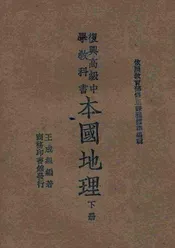 復興高級中
學教科書
本國地理
下册
王成組編著
商務印書館發行